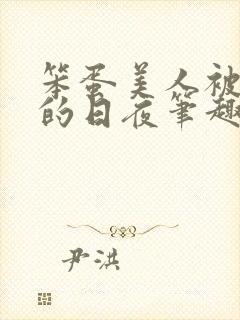 笨蛋美人被
的日夜笔趣
尹洪